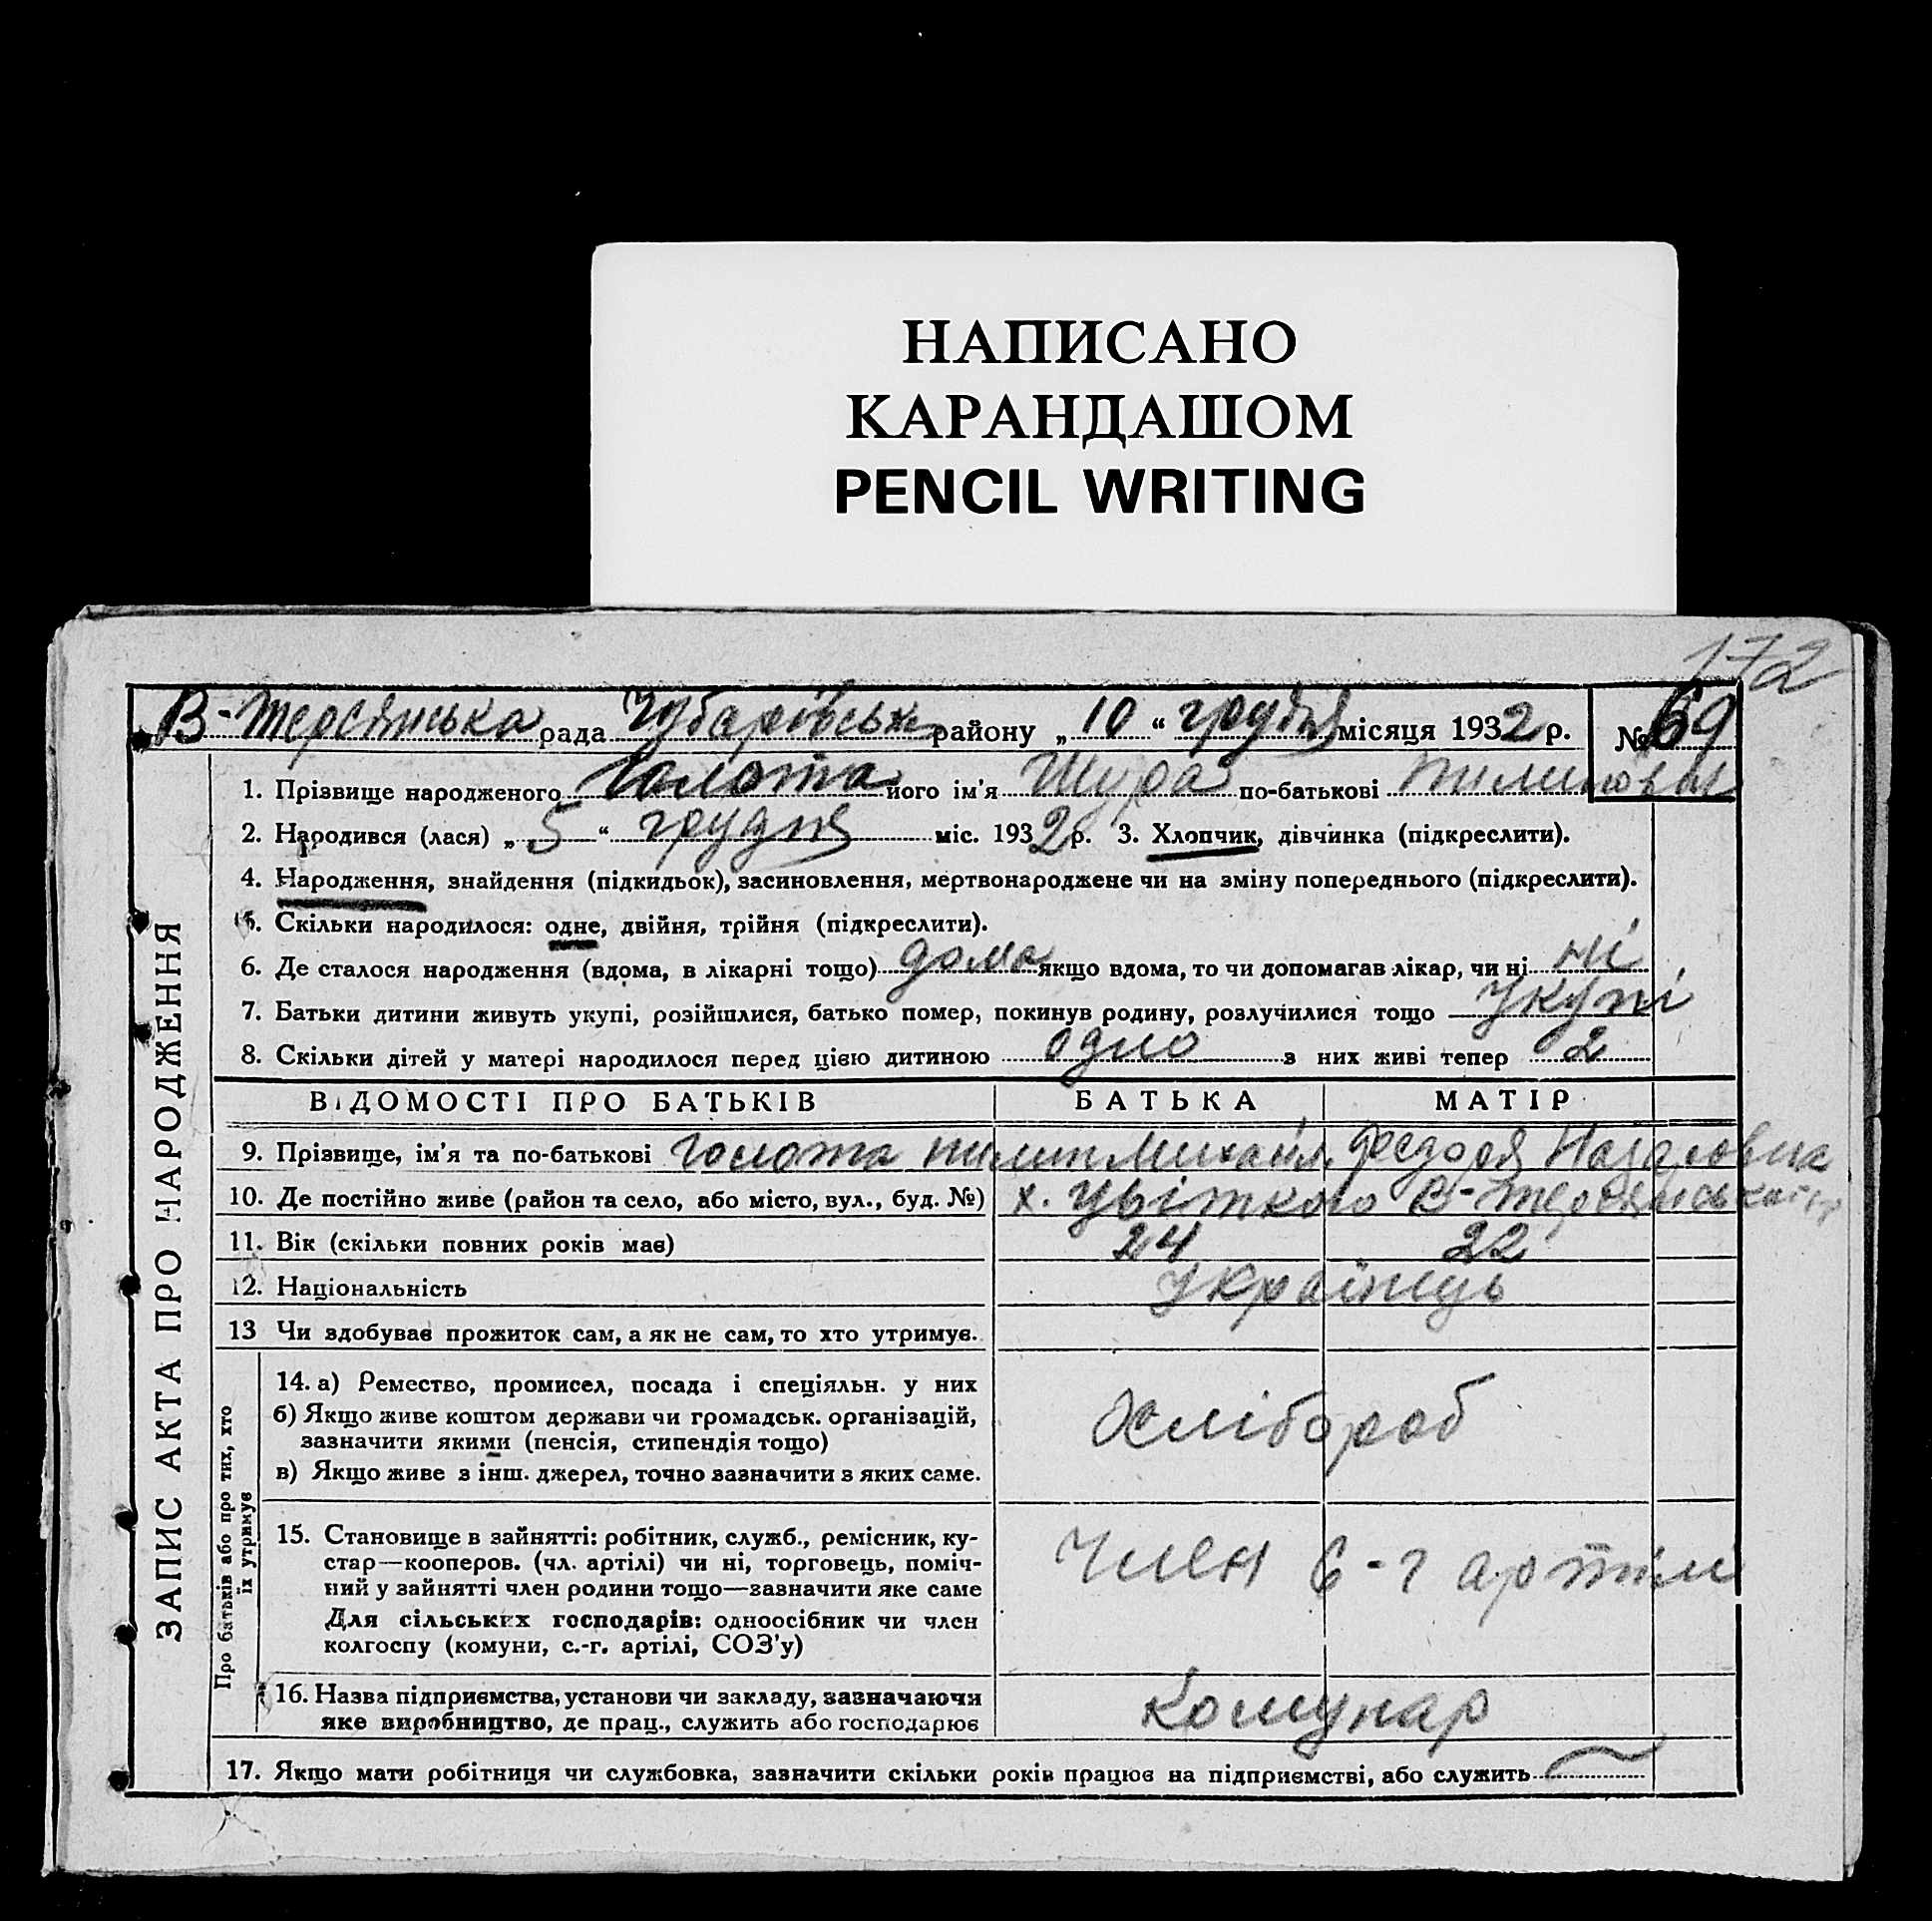 НАПИСАНО
КАРАНДАШОМ
PENCIL WRITING
172
В-Терсянська рада Чубарівськ району „10“ грудня місяця 1932 р. № 69
1. Прізвище народженого Голота його ім'я Шура по-батькові Пилипович
2. Народився (лася) „5“ грудня міс. 1932 р. 3. Хлопчик, дівчинка (підкреслити).
4. Народження, знайдення (підкидьок), засиновлення, мертвонароджене чи на зміну попереднього (підкреслити).
5. Скільки народилося: одне, двійня, трійня (підкреслити).
6. Де сталося народження (вдома, в лікарні тощо) дома якщо вдома, то чи допомагав лікар, чи ні ні
7. Батьки дитини живуть укупі, розійшлися, батько помер, покинув родину, розлучилися тощо укупі
8. Скільки дітей у матері народилося перед цією дитиною одно з них живі тепер 2
ВІДОМОСТІ ПРО БАТЬКІВ БАТЬКА МАТІР
9. Прізвище, ім'я та по-батькові Голота Пилип Михайл. Федора Назаровна
10. Де постійно живе (район та село, або місто, вул., буд. №) х. Цвіткого В-Терсянської
11. Вік (скільки повних років має) 24 22
12. Національність Українець
13 Чи здобуває прожиток сам, а як не сам, то хто утримує.
14. а) Ремество, промисел, посада і спеціяльн. у них
б) Якщо живе коштом держави чи громадськ. організацій,
зазначити якими (пенсія, стипендія тощо)
в) Якщо живе з інш. джерел, точно зазначити з яких саме.
Хлібороб
15. Становище в зайнятті: робітник, служб., ремісник, ку-
стар—кооперов. (чл. артілі) чи ні, торговець, поміч-
ний у зайнятті член родини тощо—зазначити яке саме
Для сільських господарів: одноосібник чи член
колгоспу (комуни, с.-г. артілі, СОЗ'у)
Член С-г артілі
16. Назва підприємства, установи чи закладу, зазначаючи
яке виробництво, де прац., служить або господарює
Комунар
17. Якщо мати робітниця чи службовка, зазначити скільки років працює на підприємстві, або служить
ЗАПИС АКТА ПРО НАРОДЖЕННЯ
Про батьків або про тих, хто
їх утримує